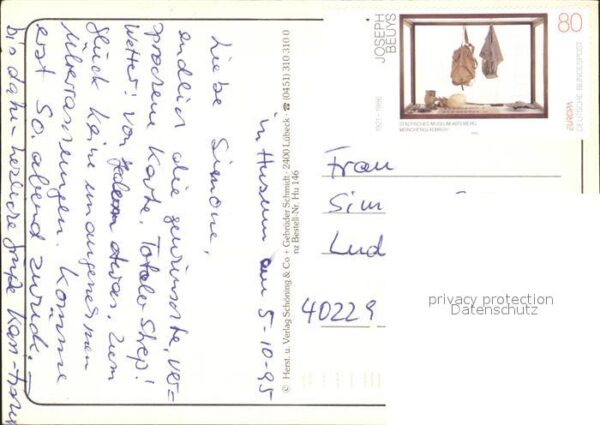 in Husum am 5-10-95
Liebe Simone,
endlich die gewünschte, ver-
sprochene Karte. Totaler Streß!
Wetter: von jedem etwas. Zum
Glück keine unangenehmen
Überraschungen. Komme
erst So. abend zurück. –
bis dahin – herzliche Grüße
© Herst. u. Verlag Schöning & Co · Gebrüder Schmidt · 2400 Lübeck · ☎ (0451) 310 310 0
nz Bestell-Nr. Hu 146
JOSEPH
BEUYS
1921–1986
80
STÄDTISCHES MUSEUM ABTEIBERG
MÖNCHENGLADBACH
EUROPA
DEUTSCHE BUNDESPOST
Frau
Sim
Lud
40229
privacy protection
Datenschutz